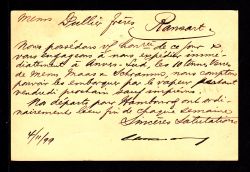 Mrs Dullié frères, Ransart.
Nous possédons v/ hon.ée de ce jour &
vous engageons à nous expédier immé-
diatement à Anvers-Sud, les 10 tonn. verre
de Mrs Maas & Schramm, nous comptons
pouvoir les embarquer par le vapeur partant
vendredi prochain sauf imprévu.
Nos départs pour Hambourg ont ordi-
nairement lieu fin de chaque semaine
Sincères Salutations
4/11/99